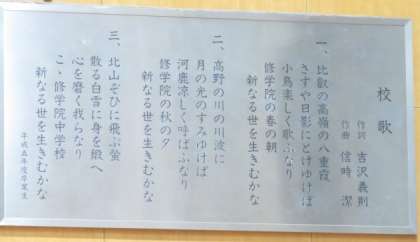 校歌
作詞 吉沢義則
作曲 信時 潔
一、比叡の高嶺の八重霞
さすや日影にとけゆけば
小鳥楽しく歌ふなり
修学院の春の朝
新なる世を生きむかな
二、高野の川の川波に
月の光のすみゆけば
河鹿涼しく呼ばふなり
修学院の秋の夕
新なる世を生きむかな
三、北山ぞひに飛ぶ螢
散る白雪に身を鍛へ
心を磨く我らなり
こゝ修学院中学校
新なる世を生きむかな
平成五年度卒業生